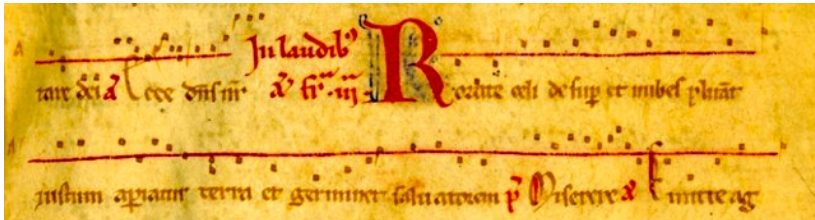 In laudibꝰ
iare dei a͞ Ecce dn̄s nr̄ a͞ fr̄ iii Rorate celi desup et nubes pluāt
iustum aperiatur terra et germinet saluatorem p̄ Miserere a͞ Emitte ag